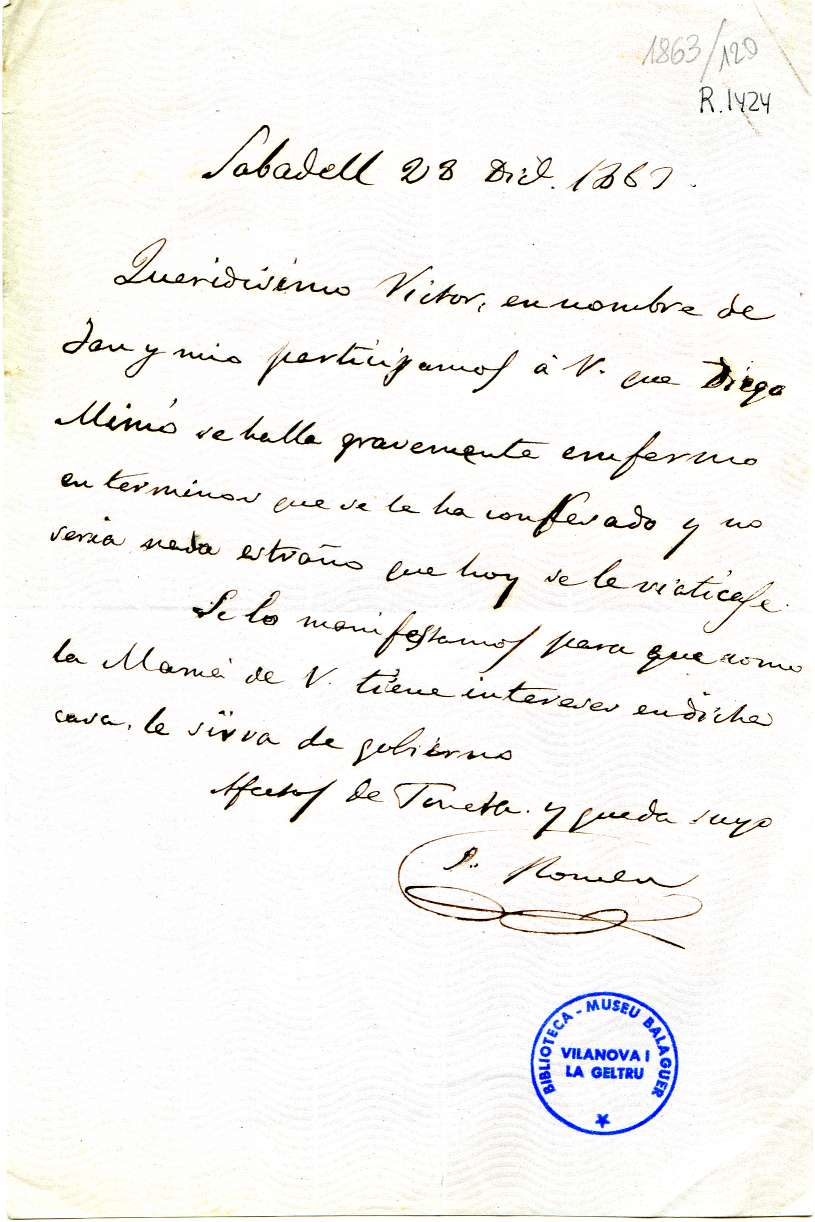 1863/120
R.1424
Sabadell 28 Dic. 1863.
Queridisimo Victor, en nombre de
Jan y mio participamos á V. que Diego
Mimó se halla gravemente enfermo
en terminos que se le ha confesado y no
seria nada estraño que hoy se le viaticase.
Se lo manifestamos para que como
la Mamá de V. tiene intereses en dicha
casa, le sirva de gobierno
Afectos de Tuneta. y queda suyo
P. Romeu
BIBLIOTECA - MUSEU BALAGUER
VILANOVA I
LA GELTRU